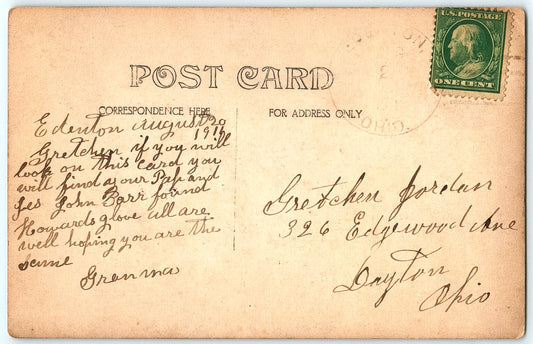 POST CARD
CORRESPONDENCE HERE
FOR ADDRESS ONLY
U.S. POSTAGE
ONE CENT
OHIO.
Edenton August 30
1910
Gretchen if you will
look on this card you
will find your Pap and
Les John Barr found
Howards glove all are
well hoping you are the
same
Granma
Gretchen Jordan
326 Edgewood Ave
Dayton
Ohio